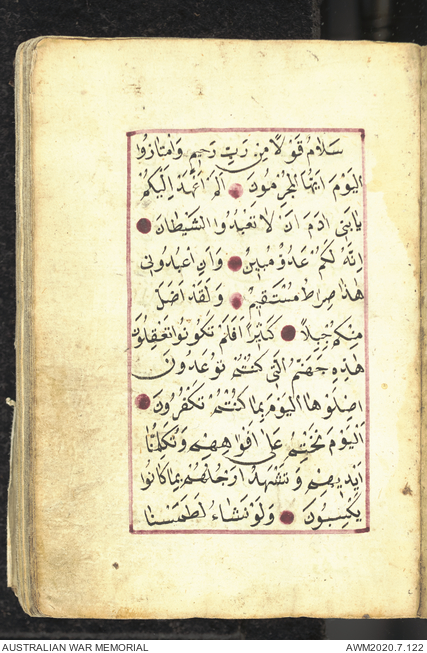 سَلَامٌ قَوْلًا مِنْ رَبٍّ رَحِيمٍ وَامْتَازُوا
الْيَوْمَ اَيُّهَا الْمُجْرِمُونَ اَلَمْ اَعْهَدْ اِلَيْكُمْ
يَابَنِى اٰدَمَ اَنْ لَا تَعْبُدُوا الشَّيْطَانَ
اِنَّهُ لَكُمْ عَدُوٌّ مُبِينٌ وَاَنِ اعْبُدُونِى
هٰذَا صِرَاطٌ مُسْتَقِيمٌ وَلَقَدْ اَضَلَّ
مِنْكُمْ جِبِلًّا كَثِيرًا اَفَلَمْ تَكُونُوا تَعْقِلُونَ
هٰذِهِ جَهَنَّمُ الَّتِى كُنْتُمْ تُوعَدُونَ
اِصْلَوْهَا الْيَوْمَ بِمَا كُنْتُمْ تَكْفُرُونَ
اَلْيَوْمَ نَخْتِمُ عَلٰى اَفْوَاهِهِمْ وَتُكَلِّمُنَا
اَيْدِيهِمْ وَتَشْهَدُ اَرْجُلُهُمْ بِمَا كَانُوا
يَكْسِبُونَ وَلَوْ نَشَاءُ لَطَمَسْنَا
AUSTRALIAN WAR MEMORIAL
AWM2020.7.122